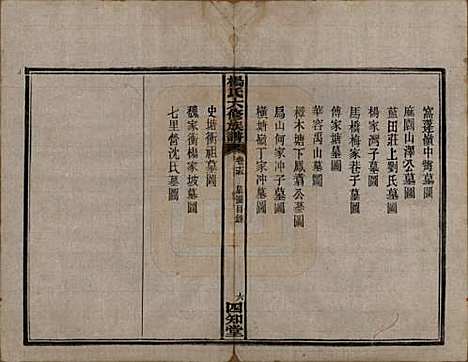 窩蓬嶺中脊墓圖
庙園山澤公墓圖
藍田莊上劉氏墓圖
楊家灣子墓圖
馬橋梅家巷子墓圖
傅家塘墓圖
華容禹山墓圖
樟木塘下鳳公墓圖
馬山何家沖子墓圖
橫塘嶺丁家沖墓圖
楊氏六修族譜
墓圖目錄
六
四知堂
史塘衝祖墓圖
魏家衝楊家坡墓圖
七里營沈氏墓圖